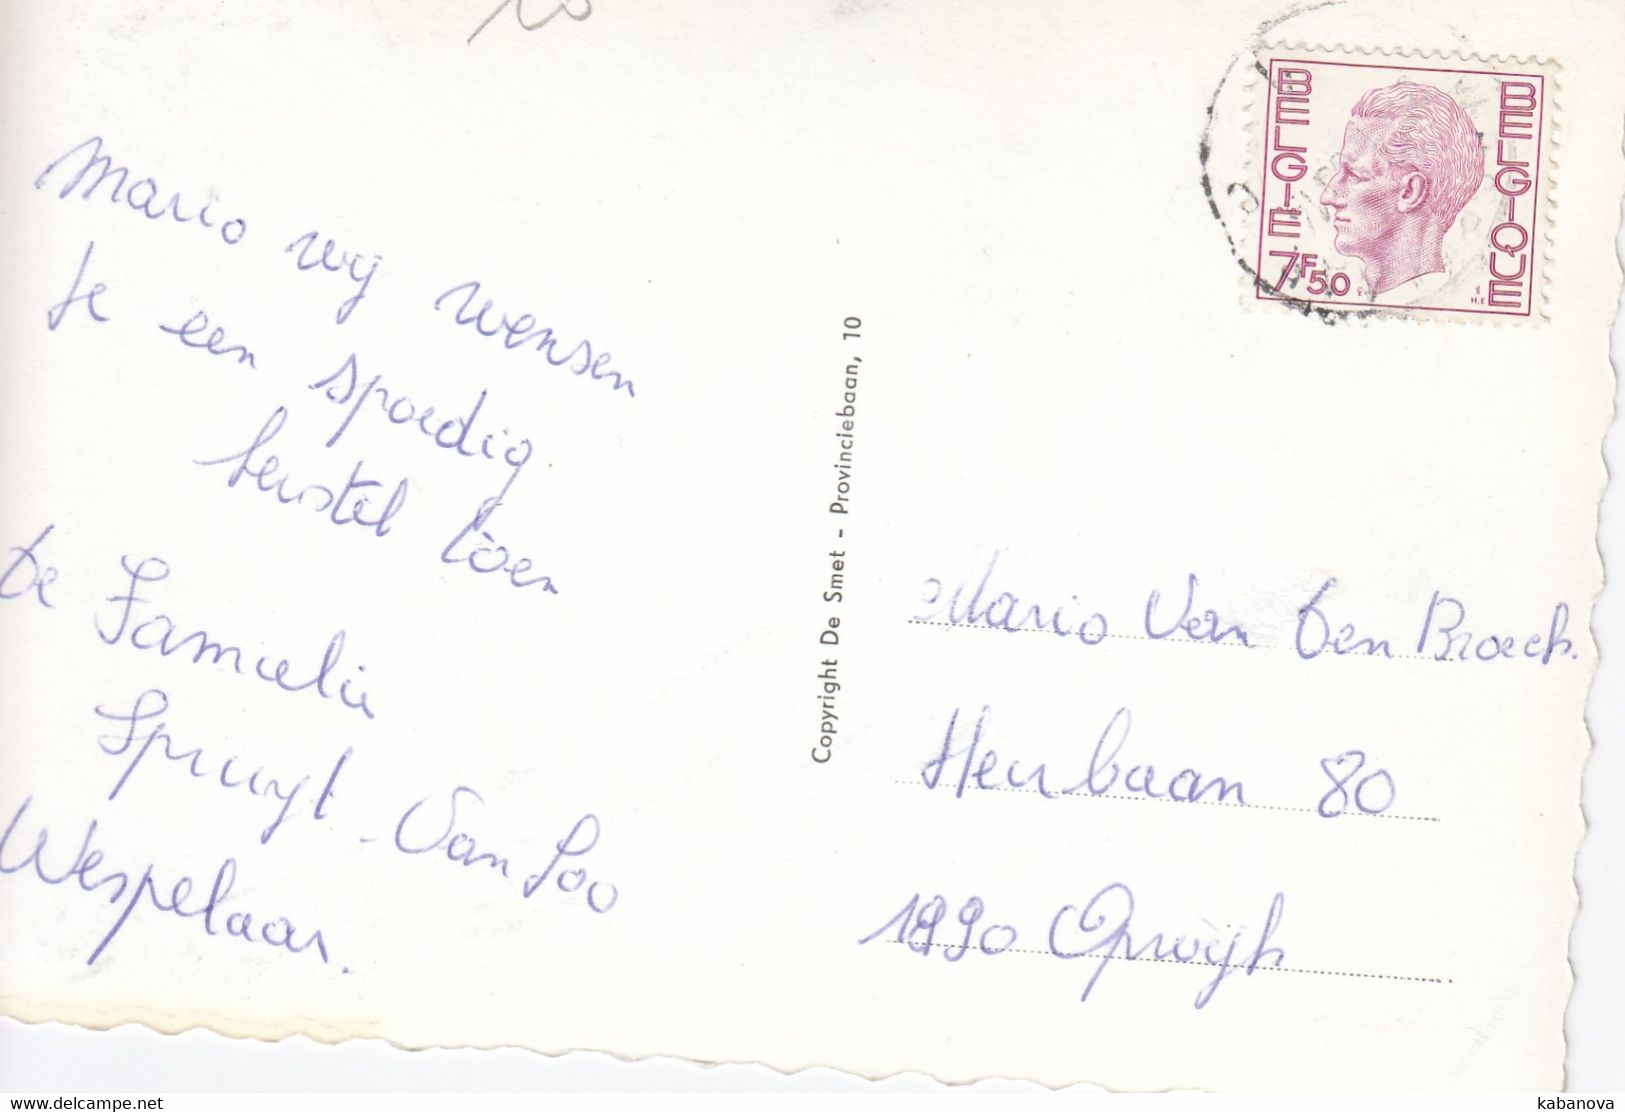 Mario wij wensen
Je een spoedig
herstel toen
De Familie
Spruyt - Van Loo
Wespelaar.
Copyright De Smet - Provinciebaan, 10
BELGIE
BELGIQUE
7F50
Mario Van Den Broeck.
Heirbaan 80
1890 Opwijk
www.delcampe.net
kabanova